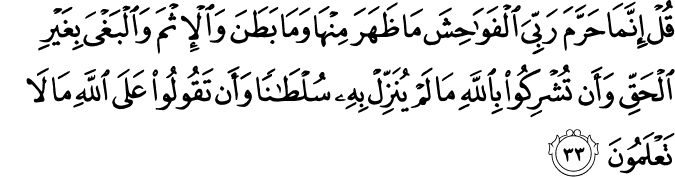 قُلْ إِنَّمَا حَرَّمَ رَبِّيَ ٱلْفَوَٰحِشَ مَا ظَهَرَ مِنْهَا وَمَا بَطَنَ وَٱلْإِثْمَ وَٱلْبَغْىَ بِغَيْرِ
ٱلْحَقِّ وَأَن تُشْرِكُوا۟ بِٱللَّهِ مَا لَمْ يُنَزِّلْ بِهِۦ سُلْطَٰنًا وَأَن تَقُولُوا۟ عَلَى ٱللَّهِ مَا لَا
تَعْلَمُونَ ٣٣